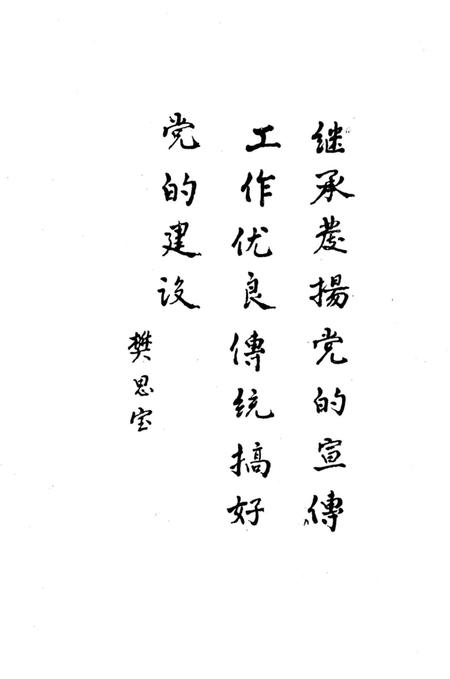 继承发揚党的宣傳
工作优良傳统搞好
党的建设
樊思宝